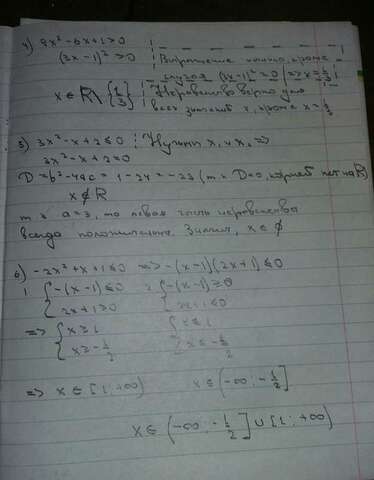 4) 9x² - 6x + 1 > 0
(3x - 1)² > 0
Выражение истинно, кроме
случая (3x - 1)² = 0 | => x = 1/3 |
x ∈ R \ {1/3}
Неравенство верно для
всех значений x, кроме x = 1/3
5) 3x² - x + 2 ≤ 0 Нужны x₁ и x₂ =>
3x² - x + 2 = 0
D = b² - 4ac = 1 - 24 = -23 (т.к. D<0, корней нет на R)
x ∉ R
т.к. a = 3, то левая часть неравенства
всегда положительна. Значит, x ∈ ∅
6) -2x² + x + 1 ≤ 0 => -(x - 1)(2x + 1) ≤ 0
1 { -(x - 1) ≤ 0 2 { -(x - 1) ≥ 0
2x + 1 ≥ 0 2x + 1 ≤ 0
=> { x ≥ 1 { x ≤ 1
x ≥ -1/2 x ≤ -1/2
=> x ∈ [1; +∞) x ∈ (-∞; -1/2]
x ∈ (-∞; -1/2] ∪ [1; +∞)